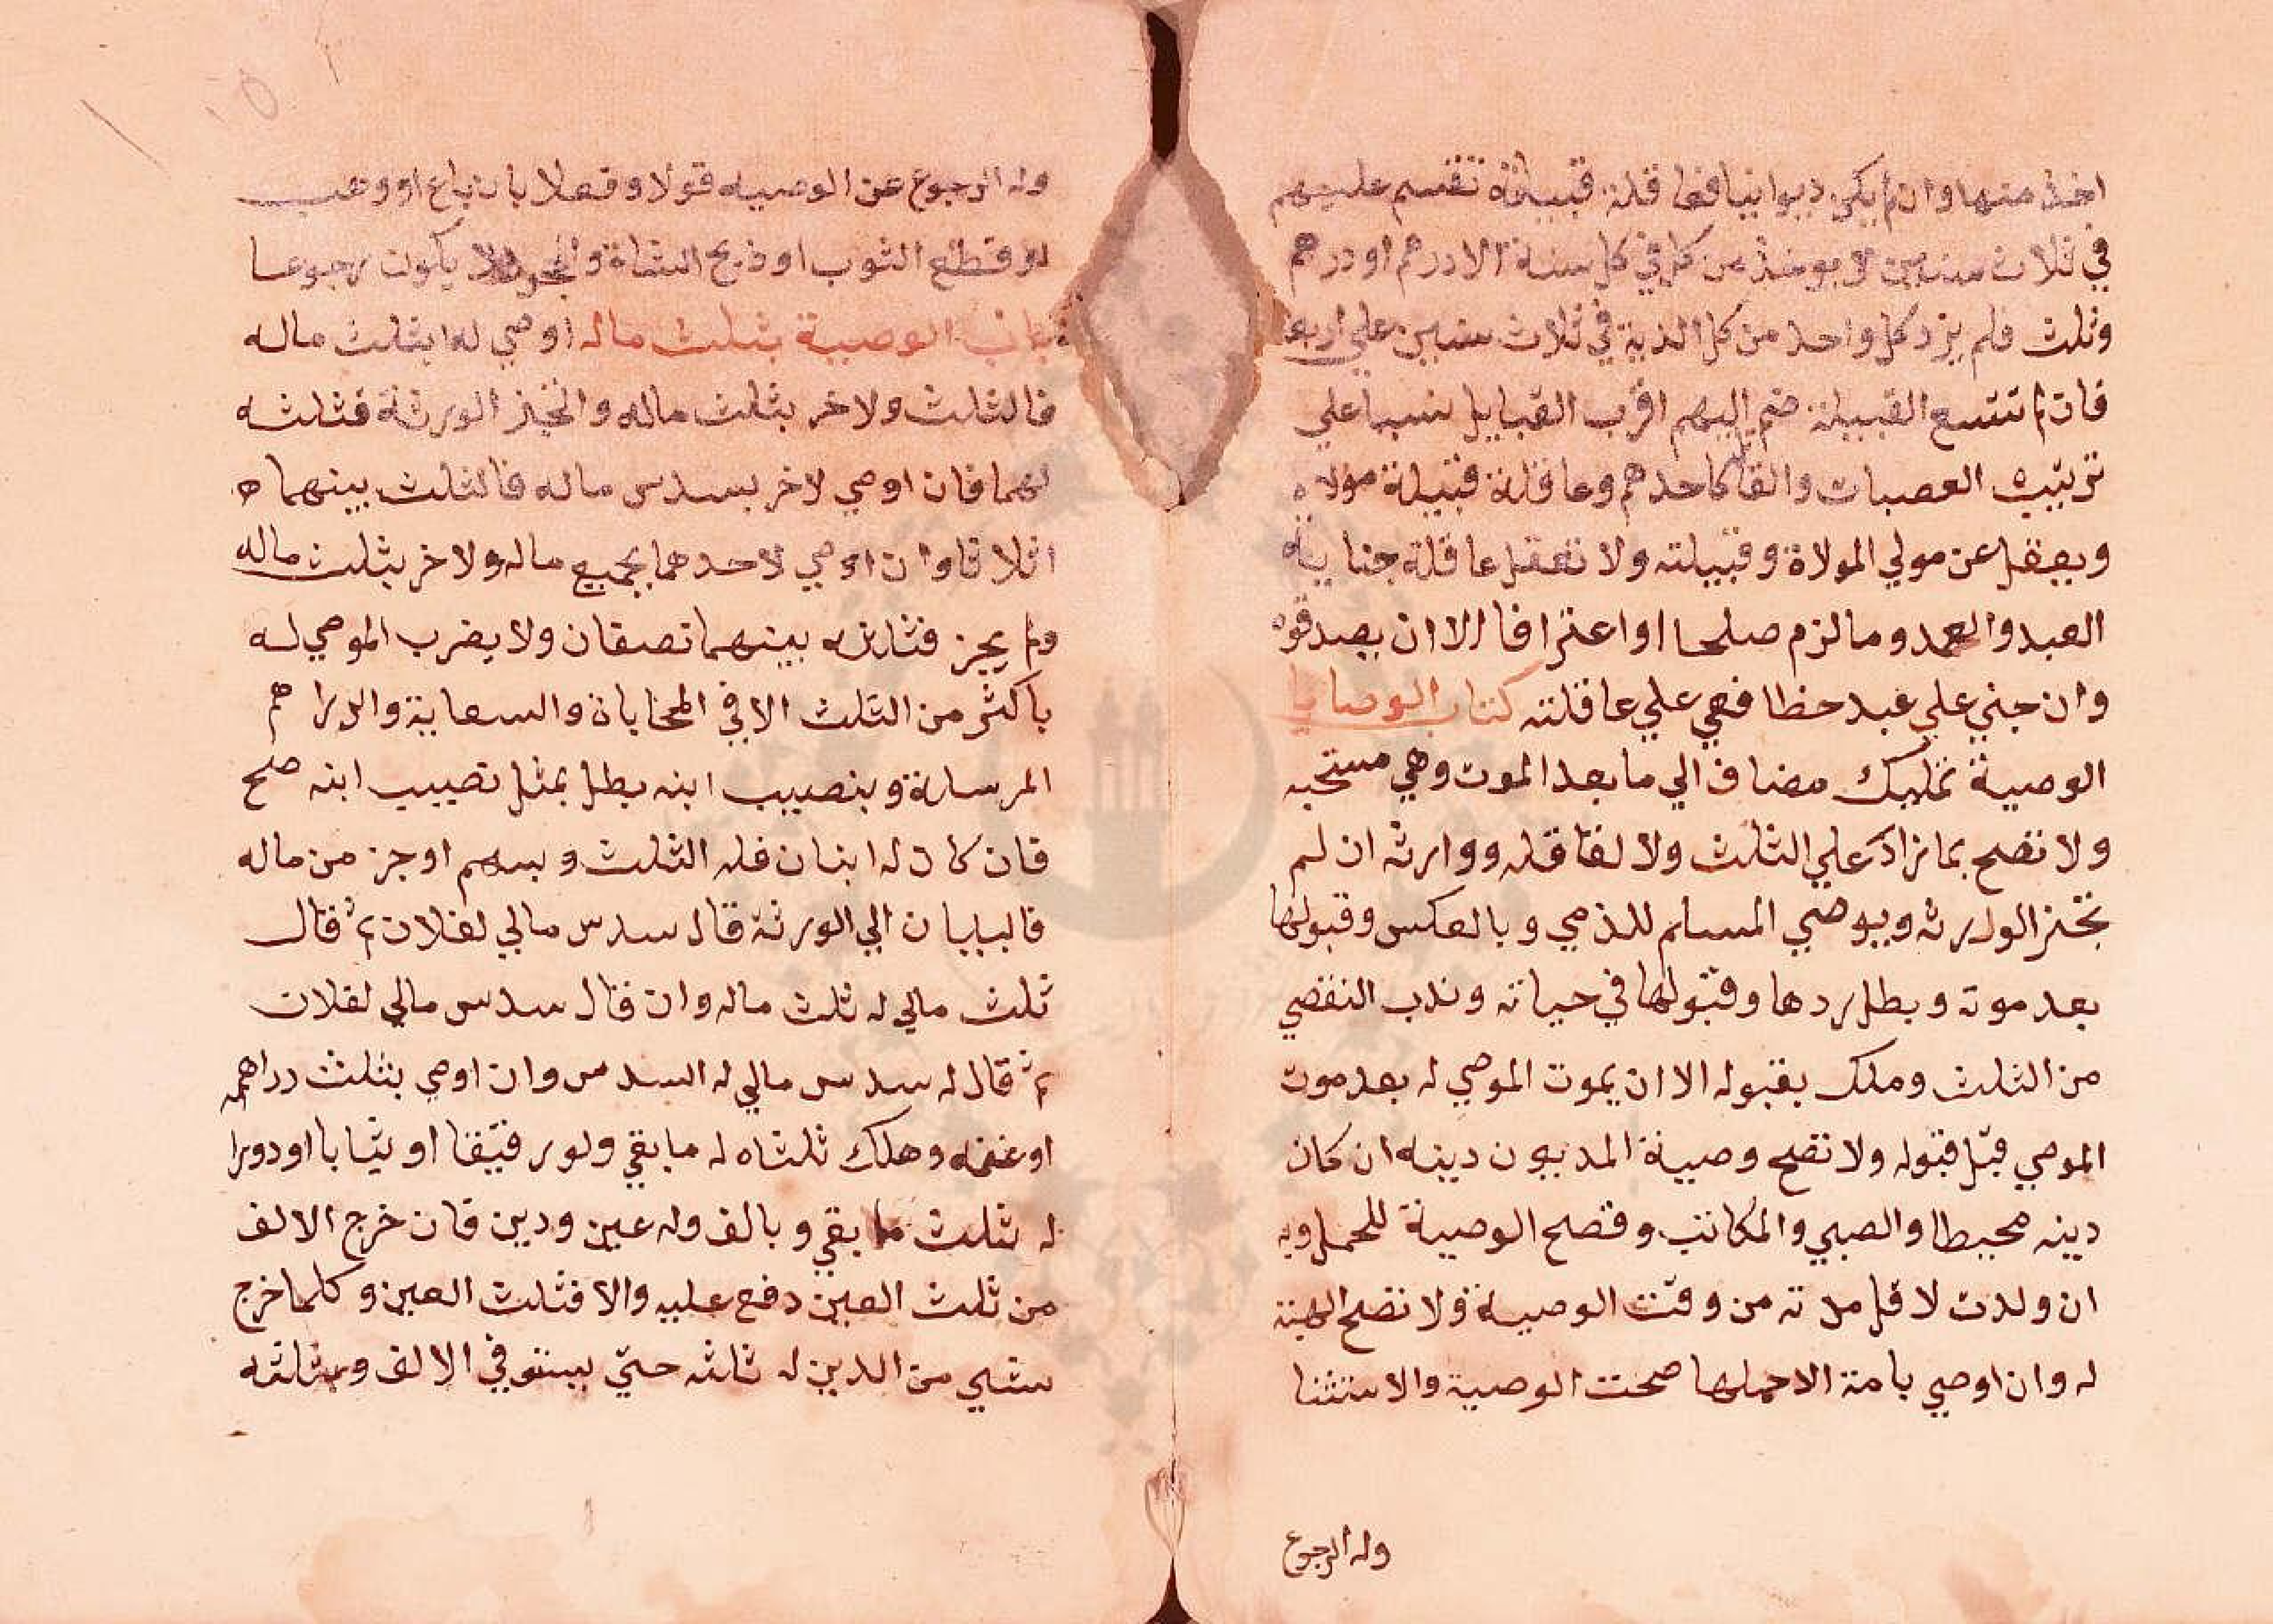 اخذ منها وان لم يكن ديوانيا فعاقلته قبيلته تقسم عليهم
في ثلاث سنين لا يوخذ من كل في كل سنة الا درهم او درهم
وثلث فلم يزد كل واحد من كل الدية في ثلاث سنين علي اربعه
فان لم تتسع القبيلة ضم اليهم اقرب القبايل نسبا علي
ترتيب العصبات والقاتل كاحدهم وعاقلة قبيلة مولاه
ويعقل عن مولي المولاة وقبيلته ولا تعقل عاقلة جناية
العبد والعمد وما لزم صلحا او اعترافا الا ان يصدقوه
وان جني علي عبد خطا فهي علي عاقلته كتاب الوصايا
الوصية تمليك مضاف الي ما بعد الموت وهي مستحبه
ولا تصح بما زاد علي الثلث ولا لقاتله ووارثه ان لم
تجز الورثه ويوصي المسلم للذمي وبالعكس وقبولها
بعد موته وبطل ردها وقبولها في حياته وندب النقص
من الثلث وملك بقبوله الا ان يموت الموصي له بعد موت
الموصي قبل قبوله ولا تصح وصية المديون دينه ان كان
دينه محيطا والصبي والمكاتب وتصح الوصية للحمل وبه
ان ولدت لاقل مدته من وقت الوصية ولا تصح الهبة
له وان اوصي بامة الا حملها صحت الوصية والاستثنا
وله الرجوع
وله الرجوع عن الوصيه قولا وفعلا بان باع او وهب
او قطع الثوب او ذبح الشاة والجحود لا يكون رجوعا
باب الوصية بثلث ماله اوصي لهذا بثلث ماله
فالثلث ولاخر بثلث ماله ولم تجز الورثة فثلثه
لهما فان اوصي لاخر بسدس ماله فالثلث بينهما
اثلاثا وان اوصي لاحدهما بجميع ماله ولاخر بثلث ماله
ولم يجز فثلثه بينهما نصفان ولا يضرب الموصي له
باكثر من الثلث الا في المحاباة والسعاية والدراهم
المرسلة وبنصيب ابنه بطل بمثل نصيب ابنه صح
فان كان له ابنان فله الثلث وبسهم او جز من ماله
فالبيان الي الورثة قال سدس مالي لفلان ثم قال
ثلث مالي له ثلث ماله وان قال سدس مالي لفلان
ثم قال له سدس مالي له السدس وان اوصي بثلث دراهمه
او غنمه وهلك ثلثاه له ما بقي ولو رقيقا او ثيابا او دورا
له ثلث ما بقي وبالف وله عين ودين فان خرج الالف
من ثلث العين دفع عليه والا فثلث العين وكلما خرج
شي من الدين له ثلثه حتي يستوفي الالف وبثلثه